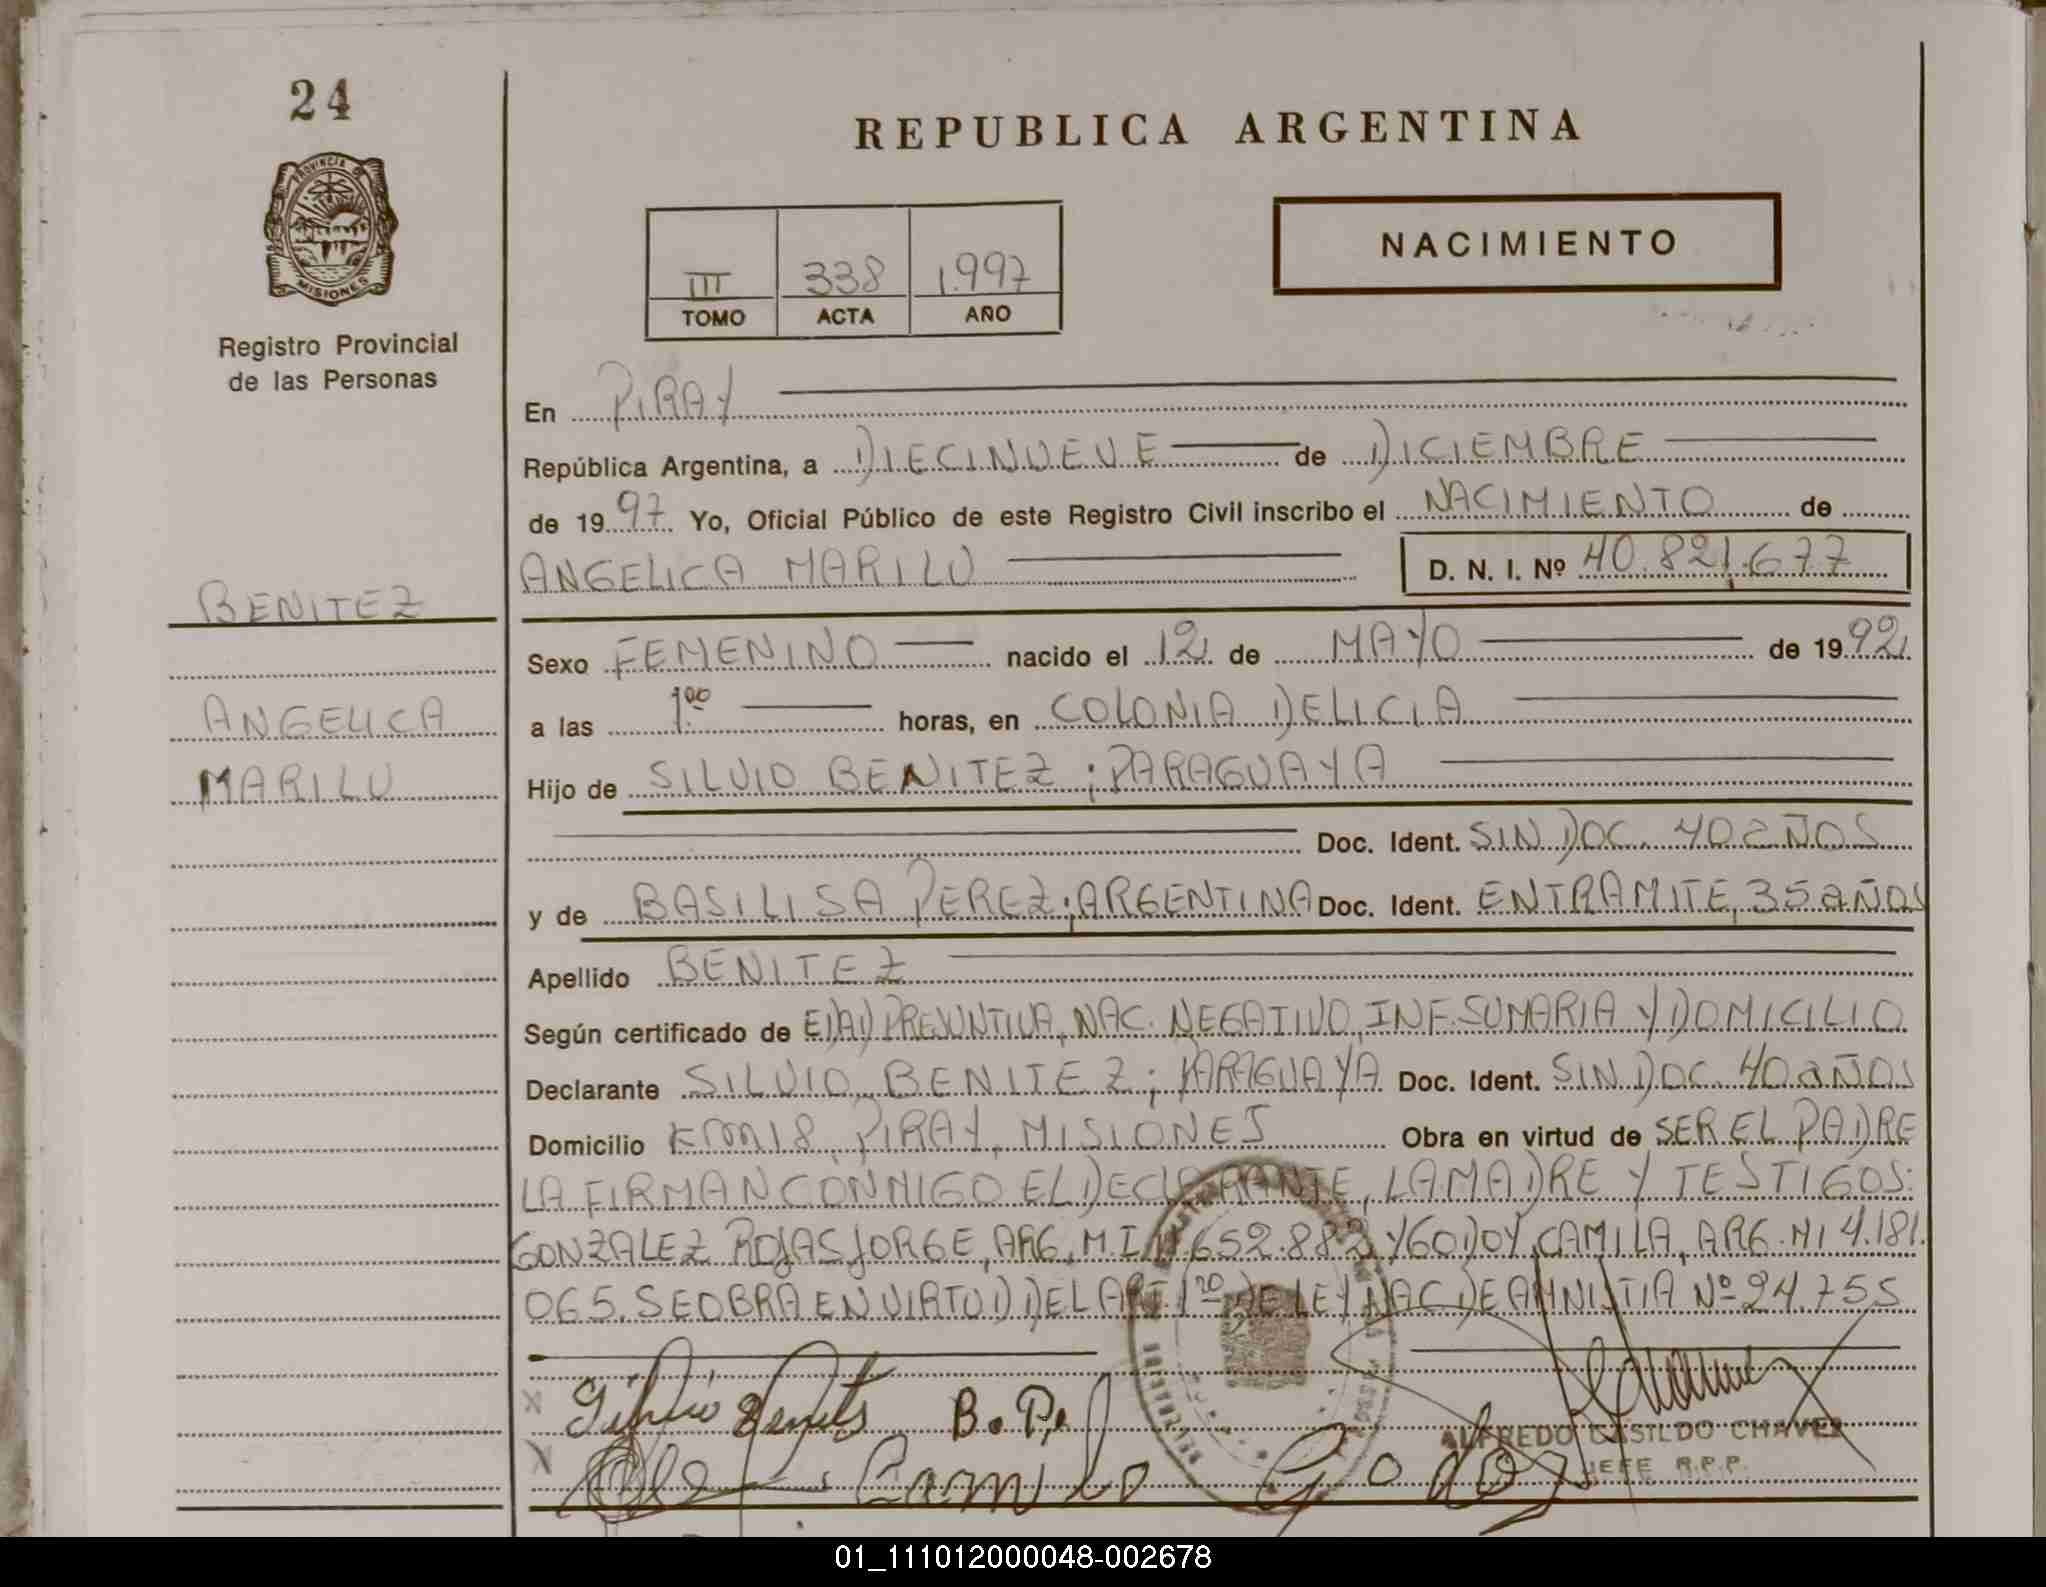 24
PROVINCIA DE
MISIONES
Registro Provincial
de las Personas
REPUBLICA ARGENTINA
III 338 1.997
TOMO ACTA AÑO
NACIMIENTO
En PIRAY
República Argentina, a DIECINUEVE de DICIEMBRE
de 1997 Yo, Oficial Público de este Registro Civil inscribo el NACIMIENTO de
ANGELICA MARILU D. N. I. Nº 40.821.677
BENITEZ
ANGELICA
MARILU
Sexo FEMENINO nacido el 12 de MAYO de 1992
a las 1.00 horas, en COLONIA DELICIA
Hijo de SILVIO BENITEZ ; PARAGUAYA
Doc. Ident. SIN DOC. 40 AÑOS
y de BASILISA PEREZ ; ARGENTINA Doc. Ident. EN TRAMITE, 35 AÑOS
Apellido BENITEZ
Según certificado de EDAD PRESUNTIVA, NAC. NEGATIVO, INF. SUMARIA Y DOMICILIO
Declarante SILVIO BENITEZ ; PARAGUAYA Doc. Ident. SIN DOC. 40 AÑOS
Domicilio Km 18, PIRAY, MISIONES Obra en virtud de SER EL PADRE
LA FIRMAN CONMIGO EL DECLARANTE, LA MADRE Y TESTIGOS:
GONZALEZ ROJAS JORGE, ARG, M.I. 652.882 Y GODOY, CAMILA, ARG. MI 4.181.
065. SE OBRA EN VIRTUD DEL ART 1 DE LEY NAC DE AMNISTIA Nº 24.755
Silvio Benites B. P.
Camilo Godoy
ALFREDO CASILDO CHAVEZ
JEFE R.P.P.
01_111012000048-002678